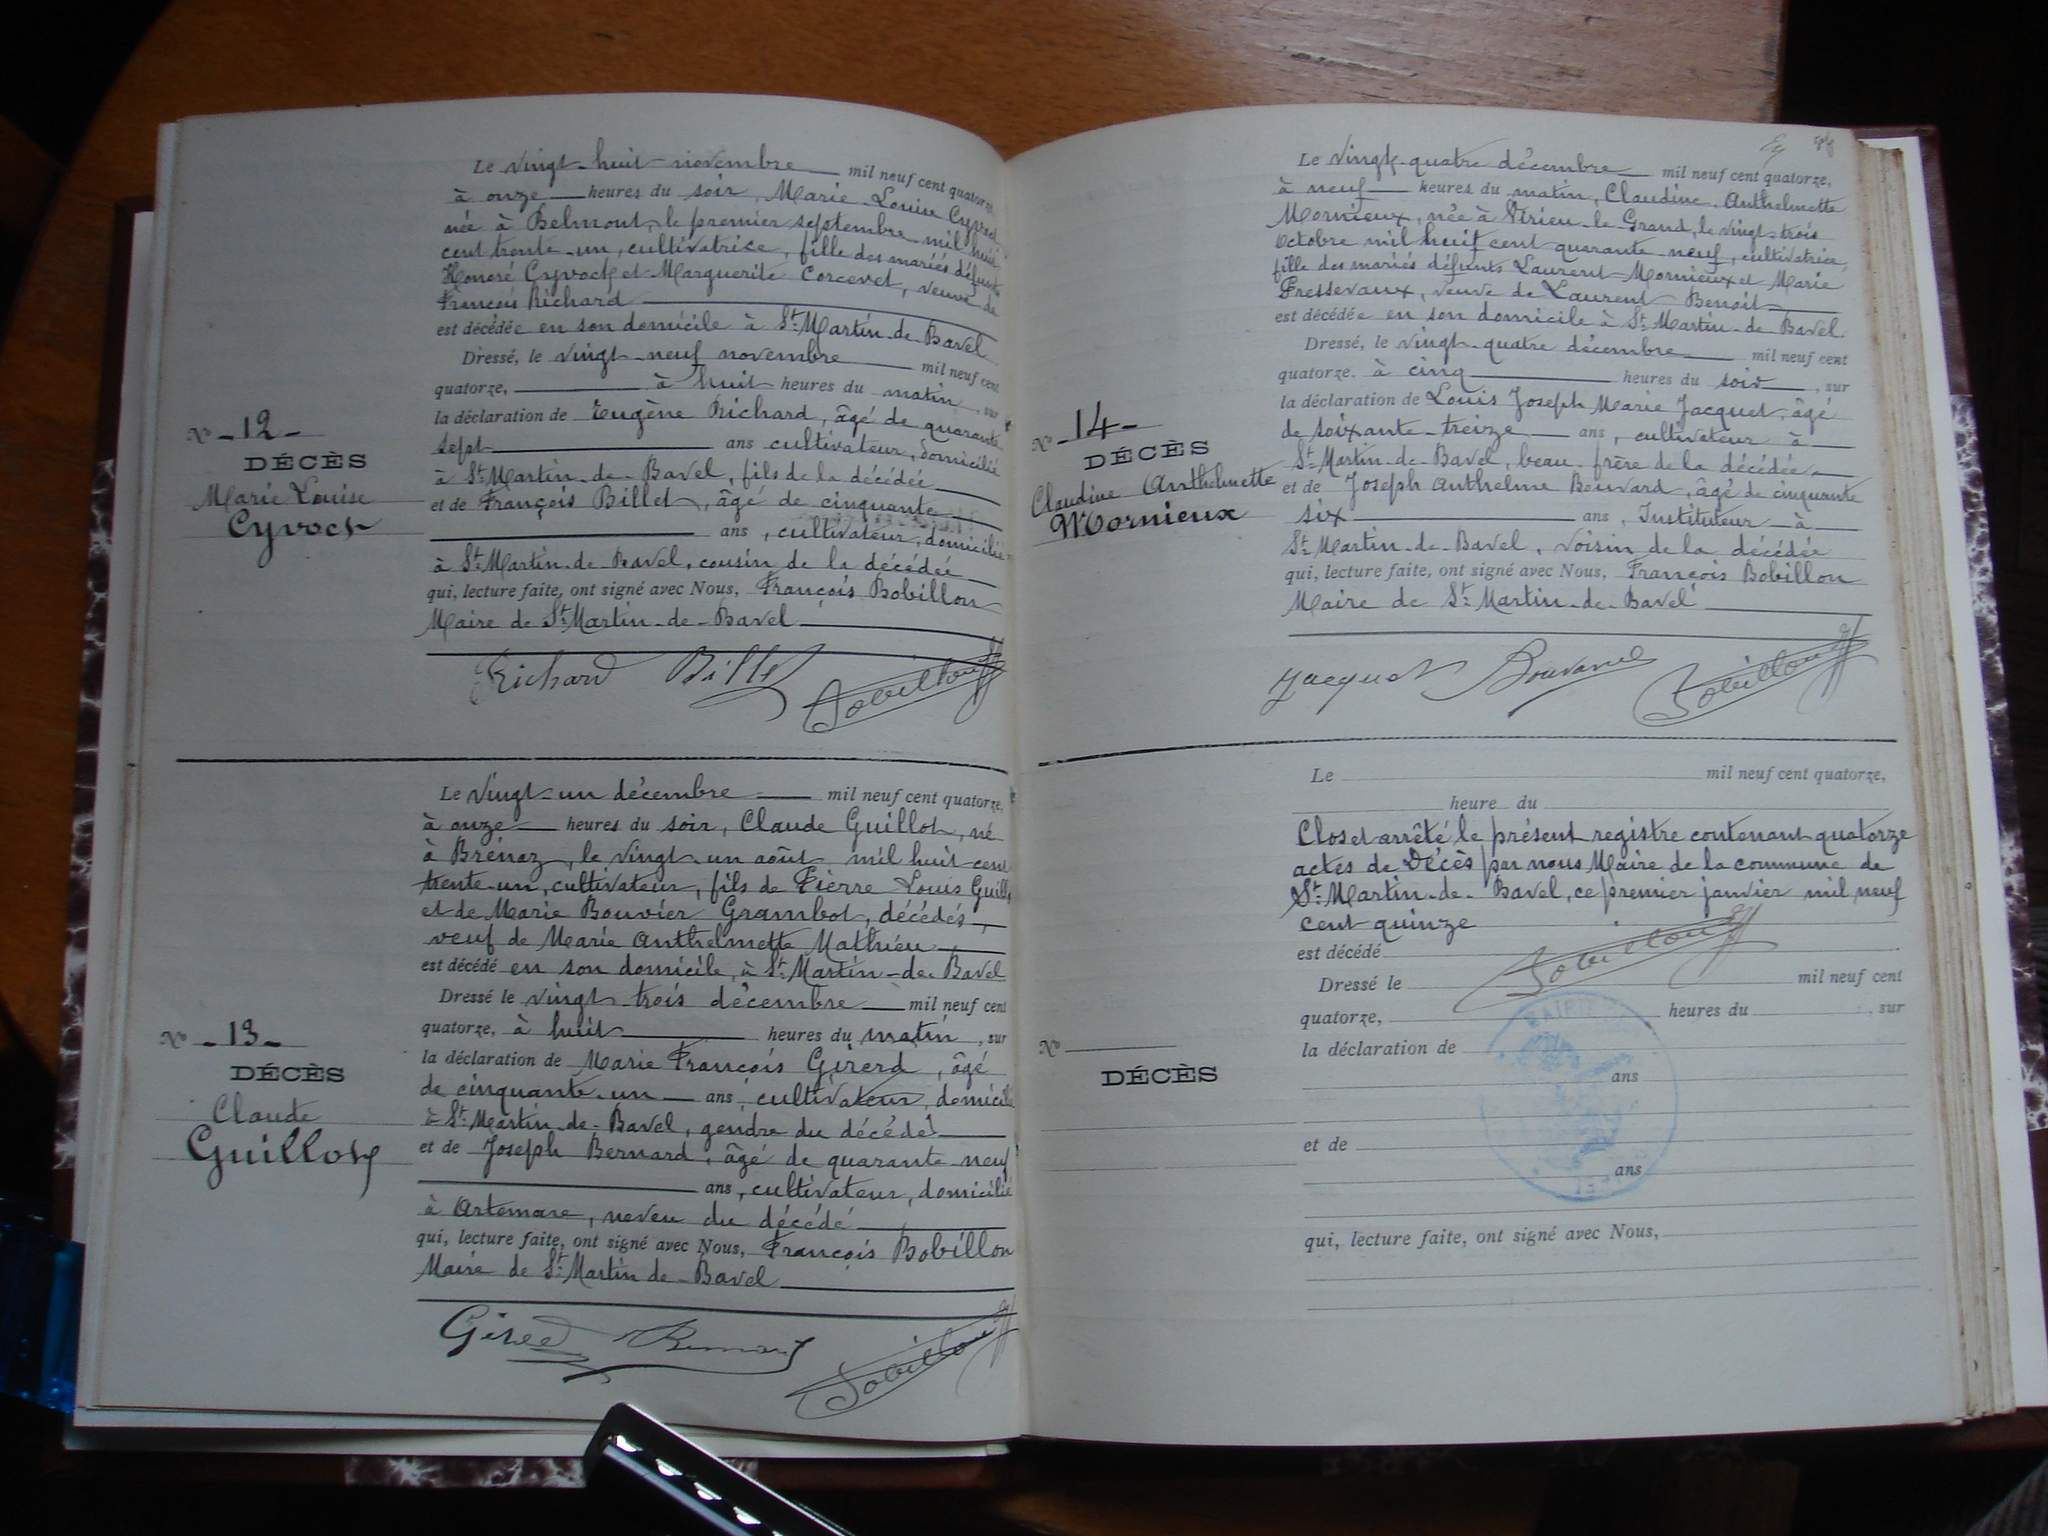 Le vingt-huit novembre mil neuf cent quatorze,
à onze heures du soir, Marie Louise Cyvoct
née à Belmont, le premier septembre mil huit
cent trente-un, cultivatrice, fille des mariés défunts
Honoré Cyvoct et Marguerite Corcevet, veuve de
François Richard
est décédée en son domicile à St Martin-de-Bavel
Dressé, le vingt-neuf novembre mil neuf cent
quatorze, à huit heures du matin, sur
la déclaration de Eugène Richard, âgé de quarante
sept ans cultivateur, domicilié
à St Martin-de-Bavel, fils de la décédée
et de François Billet, âgé de cinquante
ans, cultivateur, domicilié
à St Martin-de-Bavel, cousin de la décédée
qui, lecture faite, ont signé avec Nous, François Bobillon
Maire de St Martin-de-Bavel
No -12-
DÉCÈS
Marie Louise
Cyvoct
Richard Billet Bobillon
Le vingt-un décembre mil neuf cent quatorze,
à onze heures du soir, Claude Guillot, né
à Brénaz, le vingt-un août mil huit cent
trente-un, cultivateur, fils de Pierre Louis Guillot
et de Marie Bouvier Grambot, décédés,
veuf de Marie Anthelmette Mathieu
est décédé en son domicile, à St Martin-de-Bavel
Dressé le vingt-trois décembre mil neuf cent
quatorze, à huit heures du matin, sur
la déclaration de Marie François Girerd, âgé
de cinquante-un ans, cultivateur, domicilié
à St Martin-de-Bavel, gendre du décédé
et de Joseph Bernard, âgé de quarante-neuf
ans, cultivateur, domicilié
à Artemare, neveu du décédé
qui, lecture faite, ont signé avec Nous, François Bobillon
Maire de St Martin de-Bavel
No -13-
DÉCÈS
Claude
Guillot
Girerd Bernard Bobillon
Le vingt-quatre décembre mil neuf cent quatorze,
à neuf heures du matin, Claudine Anthelmette
Mornieux, née à Virieu-le-Grand, le vingt-trois
octobre mil huit cent quarante-neuf, cultivatrice,
fille des mariés défunts Laurent Mornieux et Marie
Pressevaux, veuve de Laurent Benoit
est décédée en son domicile à St Martin-de Bavel
Dressé, le vingt-quatre décembre mil neuf cent
quatorze, à cinq heures du soir, sur
la déclaration de Louis Joseph Marie Jacquet, âgé
de soixante-treize ans, cultivateur à
St Martin-de-Bavel, beau-frère de la décédée
et de Joseph Anthelme Bouvard, âgé de cinquante
six ans, Instituteur à
St Martin-de-Bavel, voisin de la décédée
qui, lecture faite, ont signé avec Nous, François Bobillon
Maire de St Martin-de-Bavel
No -14-
DÉCÈS
Claudine Anthelmette
Mornieux
Jacquet Bouvard Bobillon
Le mil neuf cent quatorze,
heure du
Clos et arrêté le présent registre contenant quatorze
actes de Décès par nous Maire de la commune de
St Martin-de-Bavel, ce premier janvier mil neuf
cent quinze
Bobillon
est décédé
Dressé le mil neuf cent
quatorze, heures du , sur
la déclaration de
ans
et de
ans
qui, lecture faite, ont signé avec Nous,
No
DÉCÈS
MAIRIE